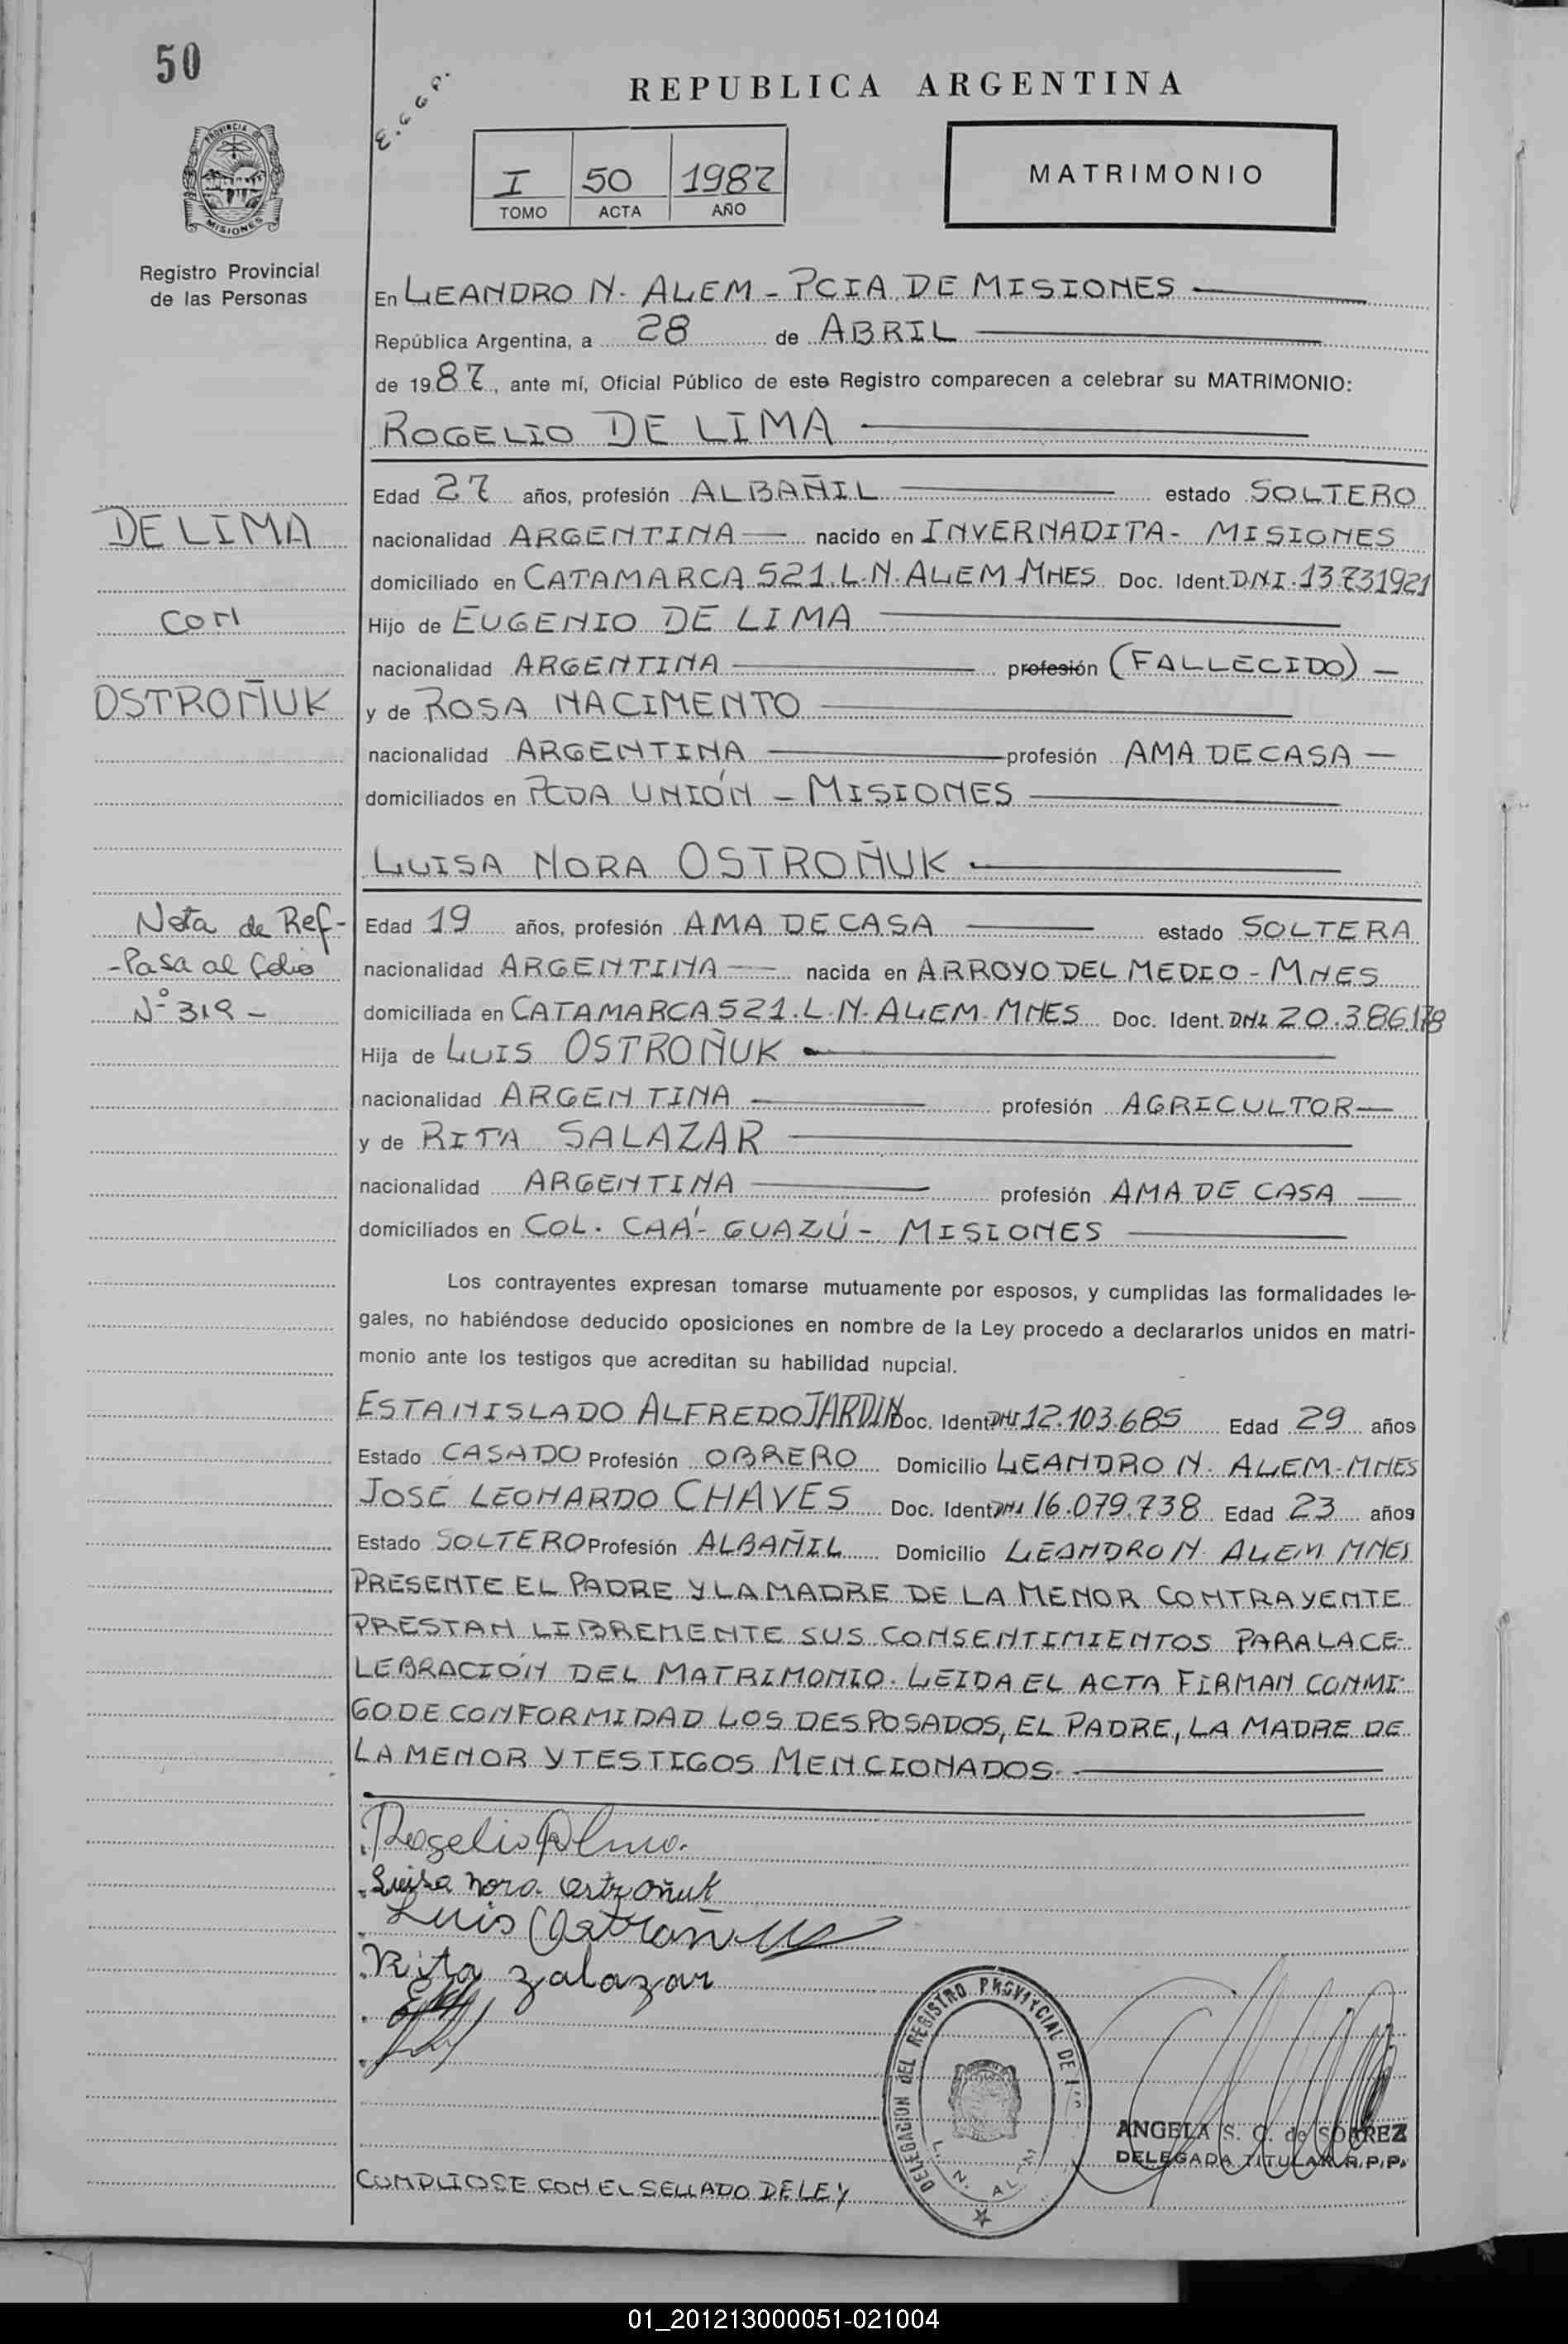 50
E.G.G.A.
REPUBLICA ARGENTINA
PROVINCIA DE MISIONES
I 50 1987
TOMO ACTA AÑO
MATRIMONIO
Registro Provincial
de las Personas
En LEANDRO N. ALEM - PCIA DE MISIONES
República Argentina, a 28 de ABRIL
de 1987, ante mí, Oficial Público de este Registro comparecen a celebrar su MATRIMONIO:
ROGELIO DE LIMA
Edad 27 años, profesión ALBAÑIL estado SOLTERO
DE LIMA
nacionalidad ARGENTINA nacido en INVERNADITA - MISIONES
domiciliado en CATAMARCA 521. L.N. ALEM MNES Doc. Ident. DNI. 13.731921
CON
Hijo de EUGENIO DE LIMA
nacionalidad ARGENTINA profesión (FALLECIDO) -
OSTROÑUK
y de ROSA NACIMENTO
nacionalidad ARGENTINA profesión AMA DE CASA -
domiciliados en PCDA UNIÓN - MISIONES
LUISA NORA OSTROÑUK
Nota de Ref-
Edad 19 años, profesión AMA DE CASA estado SOLTERA
-Pasa al folio
nacionalidad ARGENTINA nacida en ARROYO DEL MEDIO - MNES
Nº 319 -
domiciliada en CATAMARCA 521. L.N. ALEM - MNES Doc. Ident. DNI 20.386178
Hija de LUIS OSTROÑUK
nacionalidad ARGENTINA profesión AGRICULTOR
y de RITA SALAZAR
nacionalidad ARGENTINA profesión AMA DE CASA
domiciliados en COL. CAÁ-GUAZÚ - MISIONES
Los contrayentes expresan tomarse mutuamente por esposos, y cumplidas las formalidades le-
gales, no habiéndose deducido oposiciones en nombre de la Ley procedo a declararlos unidos en matri-
monio ante los testigos que acreditan su habilidad nupcial.
ESTANISLADO ALFREDO JARDIN Doc. Ident DNI 12.103.685 Edad 29 años
Estado CASADO Profesión OBRERO Domicilio LEANDRO N. ALEM-MNES
JOSÉ LEONARDO CHAVES Doc. Ident DNI 16.079.738 Edad 23 años
Estado SOLTERO Profesión ALBAÑIL Domicilio LEANDRO N. ALEM MNES
PRESENTE EL PADRE Y LA MADRE DE LA MENOR CONTRAYENTE
PRESTAN LIBREMENTE SUS CONSENTIMIENTOS PARA LA CE-
LEBRACIÓN DEL MATRIMONIO. LEIDA EL ACTA FIRMAN CONMI-
GO DE CONFORMIDAD LOS DESPOSADOS, EL PADRE, LA MADRE DE
LA MENOR Y TESTIGOS MENCIONADOS.
Rogelio
Luisa Nora Ostroñuk
Luis Ostroñuk
Rita Zalazar
DELEGACION DEL REGISTRO PROVINCIAL DE L. N. ALEM
ANGELA S. C. de SOAREZ
DELEGADA TITULAR R.P.P.
CUMPLIOSE CON EL SELLADO DE LEY
01_201213000051-021004